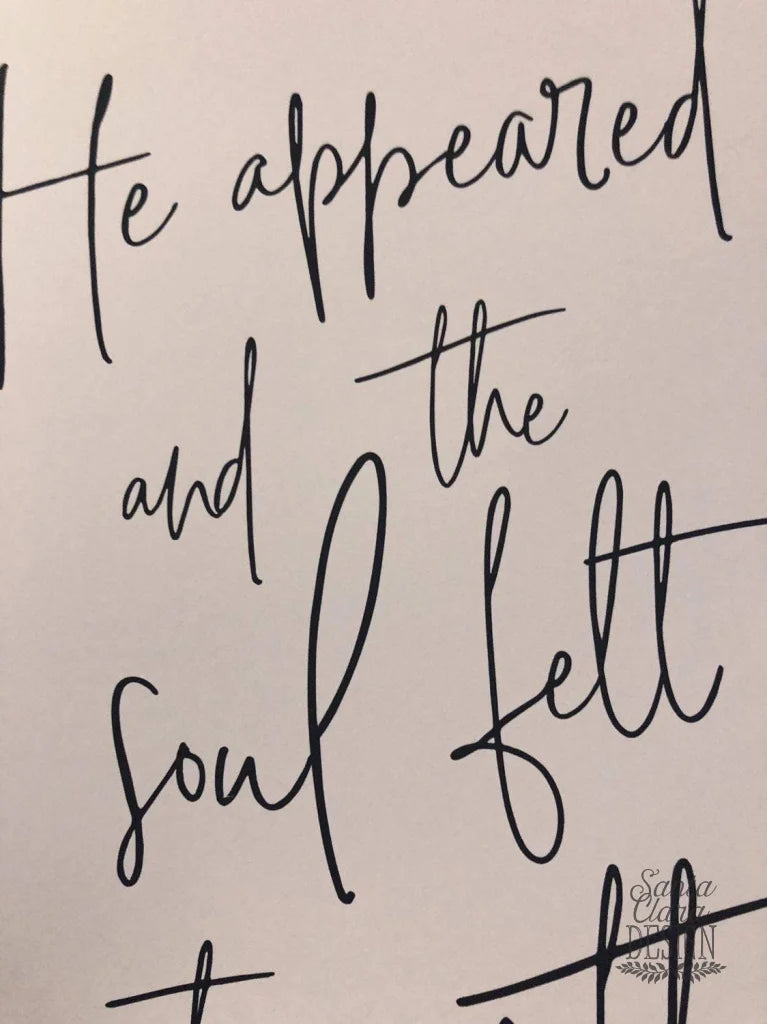 He appeared
and the
soul felt
Santa
Clara
DESIGN